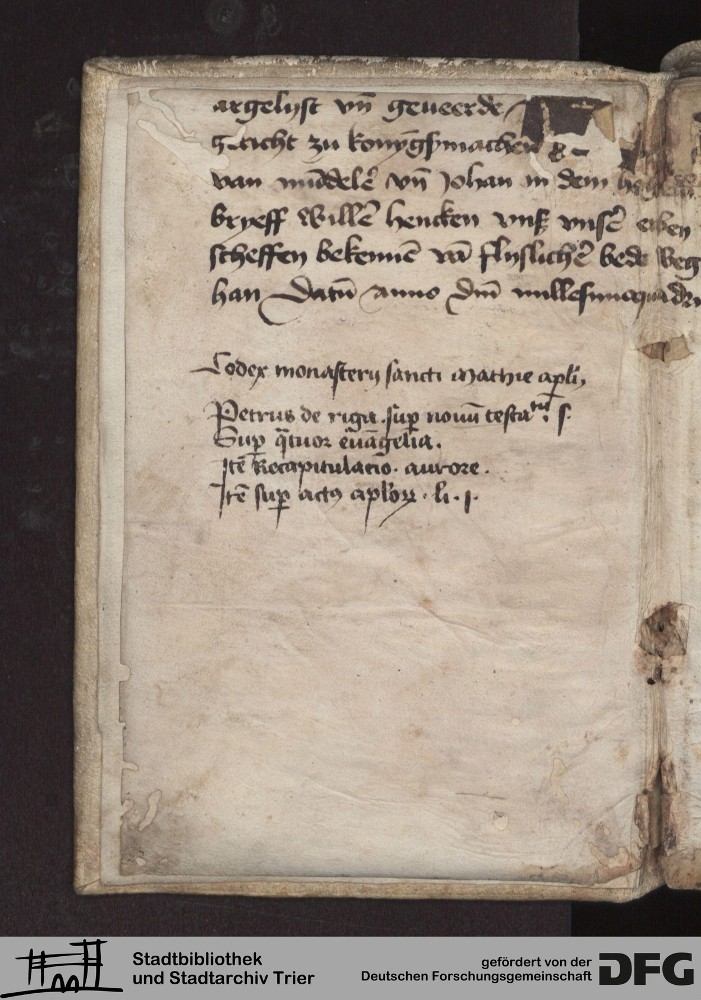 argelijst vn̄ geueerde
gericht zu konyḡsmacher
van mūdelē vn̄ Johan in dem
bryeff Willē hencken vnß vnsē erben
scheffen bekennē vā flyslichē bede Weg
han Datū anno dn̄i millesimoquadri
Codex monasterij sancti Mathie apl̄i
Petrus de riga sup nouū testatū. s.
Sup qͣtuor euāgelia.
Itē Recapitulatio. aurore.
Itē sup actꝯ apl̄oꝝ. li. j.
Stadtbibliothek
und Stadtarchiv Trier
gefördert von der
Deutschen Forschungsgemeinschaft
DFG